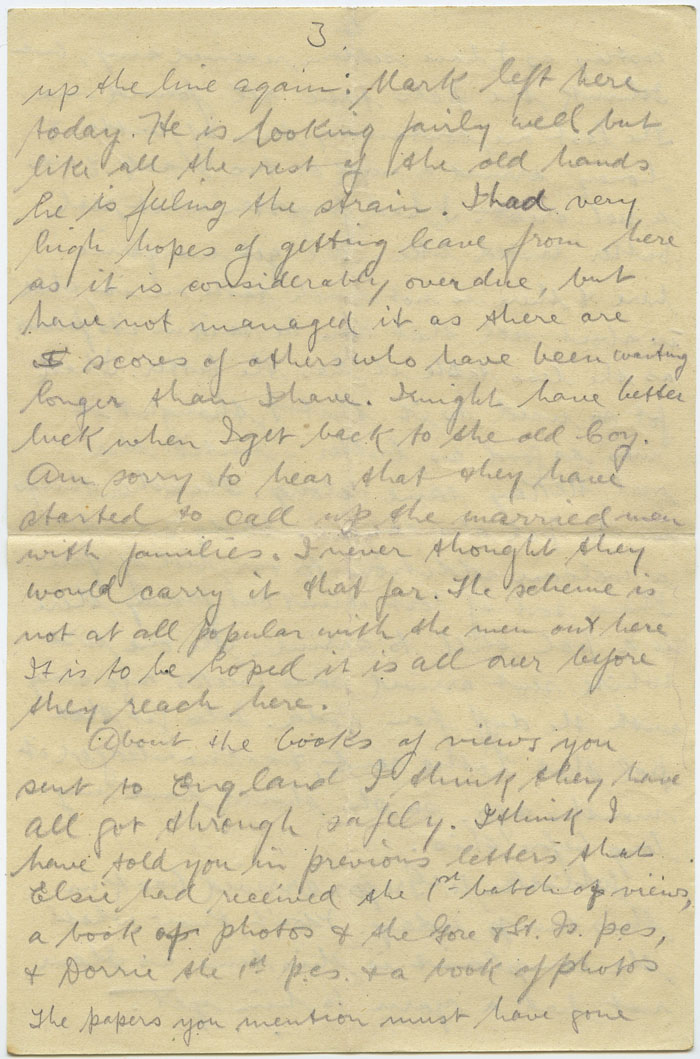 3.
up the line again: Mark left here
today. He is looking fairly well but
like all the rest of the old hands
he is feeling the strain. I had very
high hopes of getting leave from here
as it is considerably overdue, but
have not managed it as there are
scores of others who have been waiting
longer than I have. I might have better
luck when I get back to the old Coy.
Am sorry to hear that they have
started to call up the married men
with families. I never thought they
would carry it that far. The scheme is
not at all popular with the men out here
It is to be hoped it is all over before
they reach here.
About the books of views you
sent to England I think they have
all got through safely. I think I
have told you in previous letters that
Elsie had received the 1st batch of views,
a book of photos & the Gore & St. Is. pcs,
& Dorrie the 1st p.cs. & a book of photos
The papers you mention must have gone